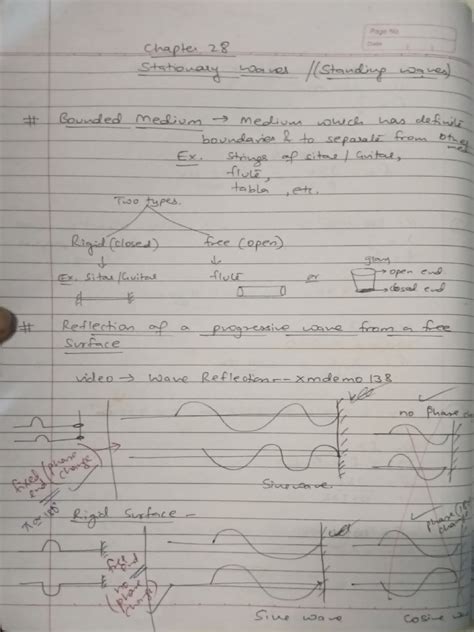 Page No.
Date
Chapter 28
Stationary waves /(Standing waves)
# Bounded Medium → Medium which has definite
boundaries & to separate from other
Ex. Strings of sitar/Guitar,
flute,
tabla, etc.
Two types.
Rigid (closed) free (open)
Ex. Sitar/Guitar flute or glass
open end
closed end
# Reflection of a progressive wave from a free
Surface
video → Wave Reflection -- xmdemo 138
no Phase
fixed end (phase change)
Sine wave
Rigid Surface -
no (phase change)
Sine wave Cosine